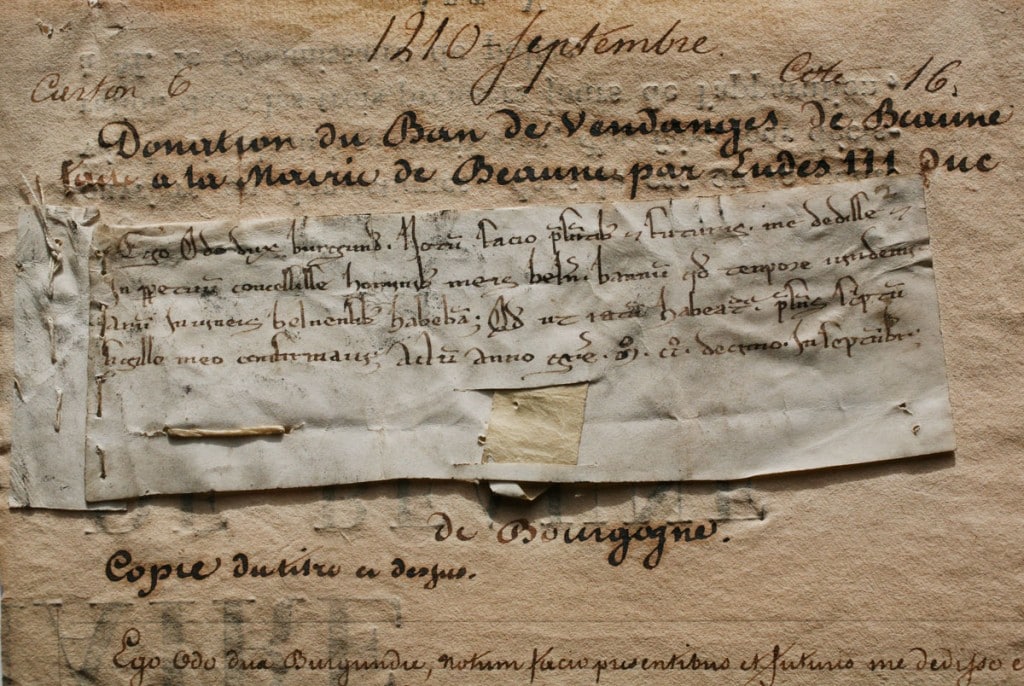 1210 Septembre.
Carton 6 Cote 16.
Donation du Ban de Vendanges de Beaune
faite a la Mairie de Beaune par Eudes III Duc
Ego Odo dux burgund. Notū facio p̄sentib; & futuris. me dedisse &
in ppetuū concessisse hominib; meis beln̄. bannū qd tempore vindemi
arū in vineis belnensib; habebā; Qd ut ratū habeat. p̄sens scptū
sigillo meo confirmavi; Actū anno gr̄e. M̊. CC̊. decimo. In septēbr̄;
de Bourgogne.
Copie du titre ci dessus.
Ego Odo dux Burgundie, notum facio presentibus et futuris me dedisse e